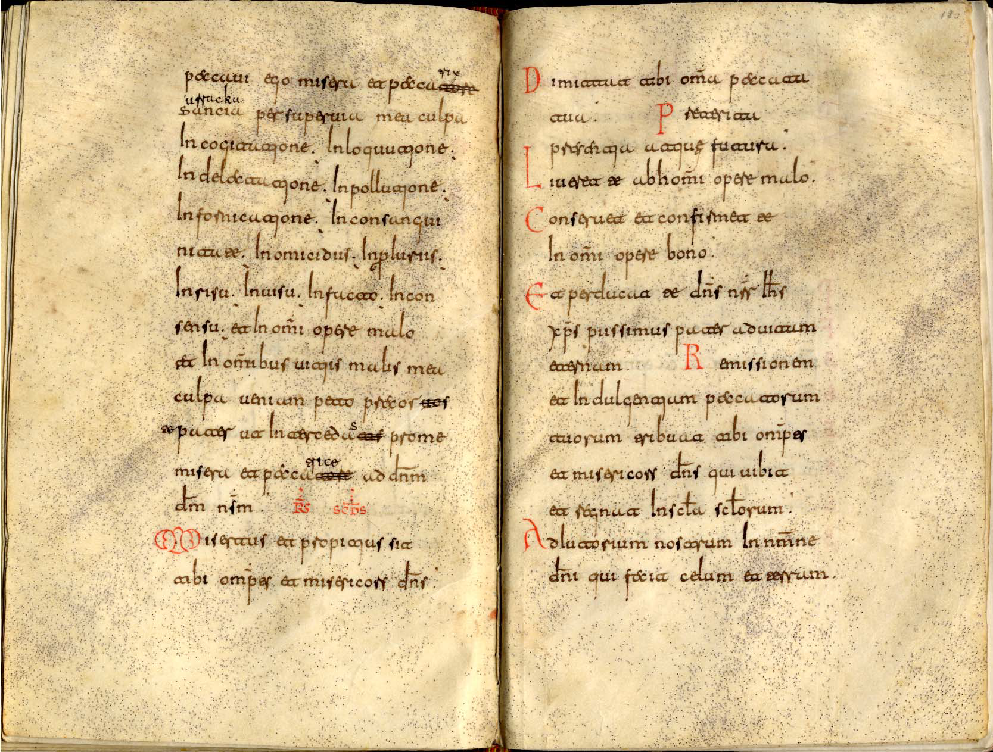 peccaui ego misera et pecca trix tore
Gracia per superuia mea culpa
In cogitatjone. In loquutjone.
In delectatjone. In pollutjone.
In fornicatjone. In consangui
nitate. In omicidiis. In plurius.
In risu. In uisu. In facto. In con
sensu. et In om̄i opere malo
et In om̄ibus uitjis malis mea
culpa ueniam peto precor
pater ut Intercedas pro me
misera et pecca trice tore ad dn̄m
dm̄ nsm̄. R̄s scd̄s
Misertus et propitjus sit
tibi omp̄s et misericors dn̄s.
Dimittat tibi om̄a peccata
tua. Preterita
presentja atque futura.
Liueret te ab hom̄i opere malo.
Conseruet et confirmet te
In om̄i opere bono.
Et perducat te dn̄s nsr̄ ih̄s
xp̄s piissimus pater ad uitam
eternam. Remissionem
et Indulgentjam peccatorum
tuorum tribuat tibi omp̄s
et misericors dn̄s qui uibit
et regnat In scl̄a scl̄orum.
Adiutorium nostrum In nm̄ne
dn̄i qui fecit celum et terram.